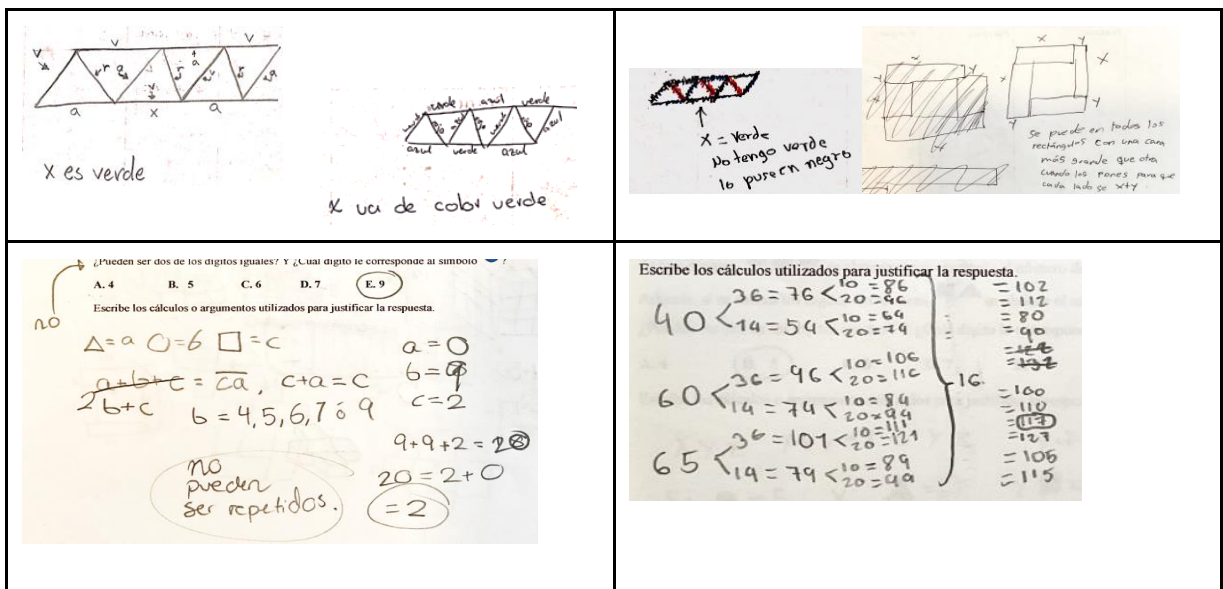 v v v
v r a r a v r a
a x a
x es verde
verde azul verde
azul verde azul
x va de color verde
x = verde
No tengo verde
lo puse en negro
x y
x
y
y
Se puede en todos los
rectángulos con una cara
más grande que otra
cuando los pones para que
cada lado se x+y.
¿Pueden ser dos de los dígitos iguales? Y ¿Cuál dígito le corresponde al símbolo ?
no
A. 4 B. 5 C. 6 D. 7 E. 9
Escribe los cálculos o argumentos utilizados para justificar la respuesta.
△=a ○=6 □=c
a+b+c = ca, c+a=c
2b+c
b = 4,5,6,7 ó 9
a = 0
b = 9
c = 2
9+9+2=20
20=2+0
=2
no
pueden
ser repetidos.
Escribe los cálculos utilizados para justificar la respuesta.
40 < 36 = 76 < 10 = 86
20 = 96
14 = 54 < 10 = 64
20 = 74
60 < 36 = 96 < 10 = 106
20 = 116
14 = 74 < 10 = 84
20 = 94
65 < 36 = 101 < 10 = 111
20 = 121
14 = 79 < 10 = 89
20 = 99
16
= 102
= 112
= 80
= 90
= 132
= 100
= 110
= 117
= 127
= 105
= 115